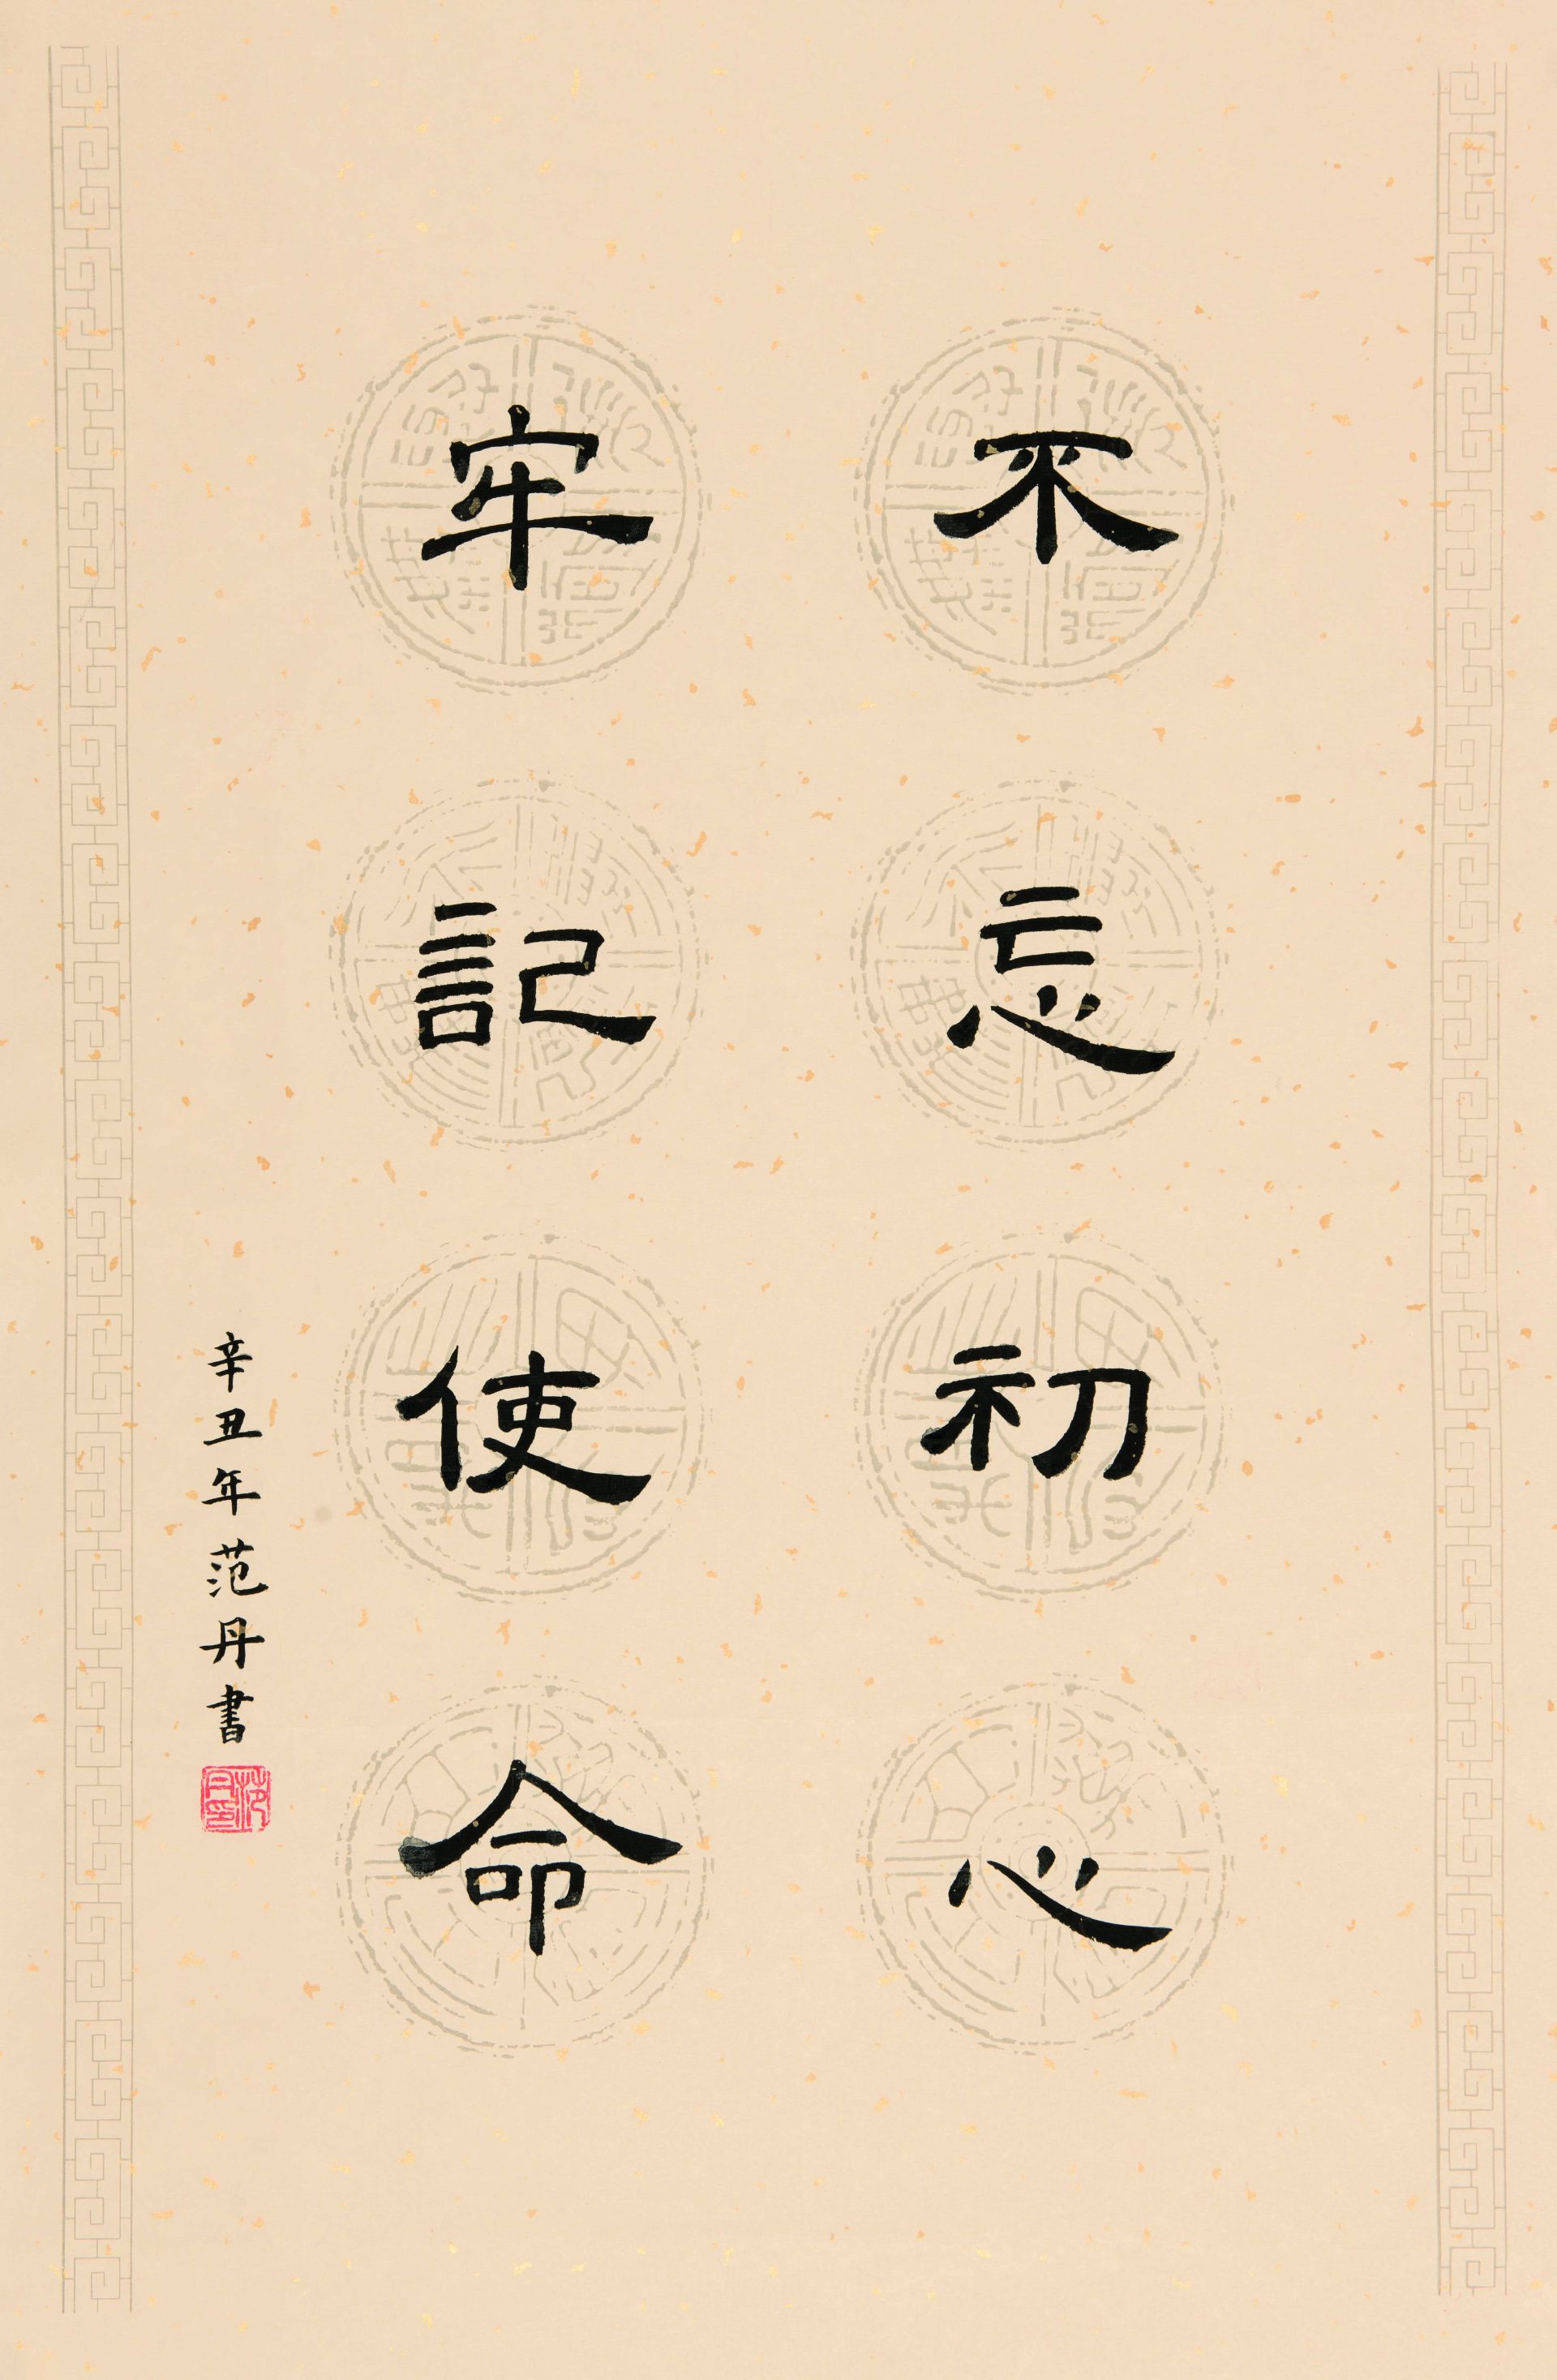 不忘初心
牢記使命
辛丑年范丹書
范丹印